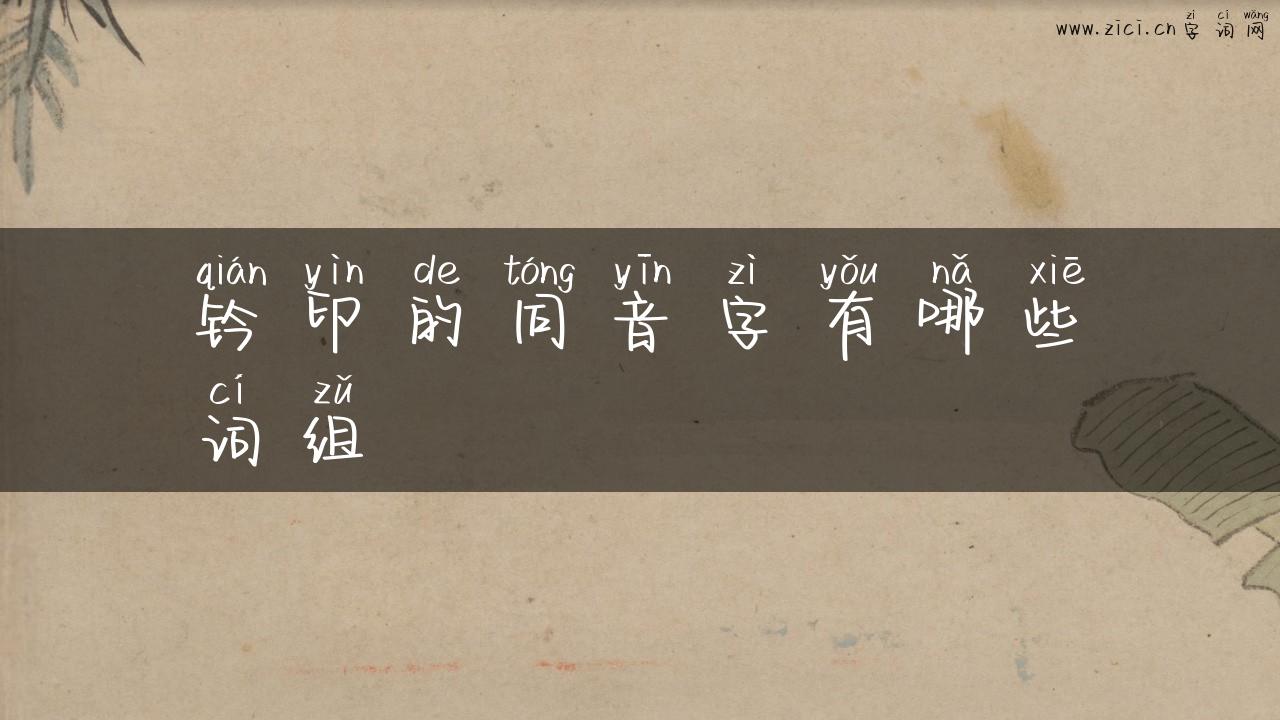 www.zici.cn 字词网
zì cí wǎng
qián yìn de tóng yīn zì yǒu nǎ xiē
钤印的同音字有哪些
cí zǔ
词组